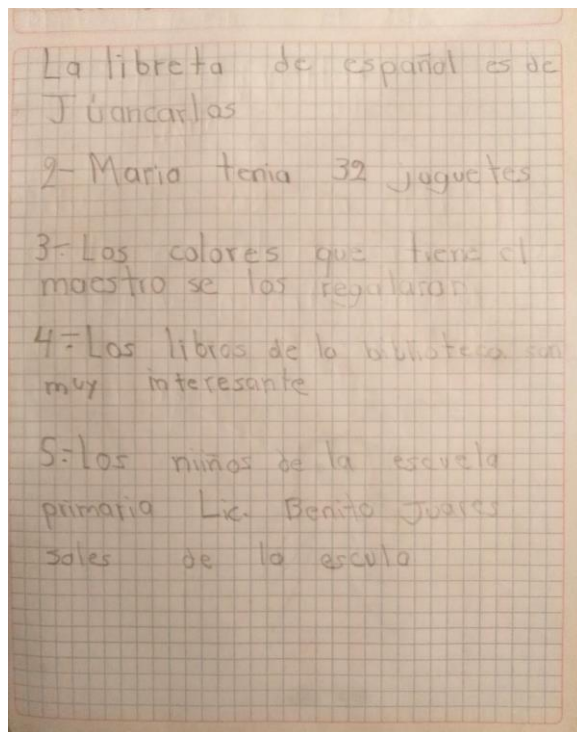 La libreta de español es de
Juancarlos
2- Maria tenia 32 juguetes
3- Los colores que tiene el
maestro se los regalaron
4- Los libros de la biblioteca son
muy interesante
5- los niños de la escuela
primaria Lic. Benito Juares
sales de la escula